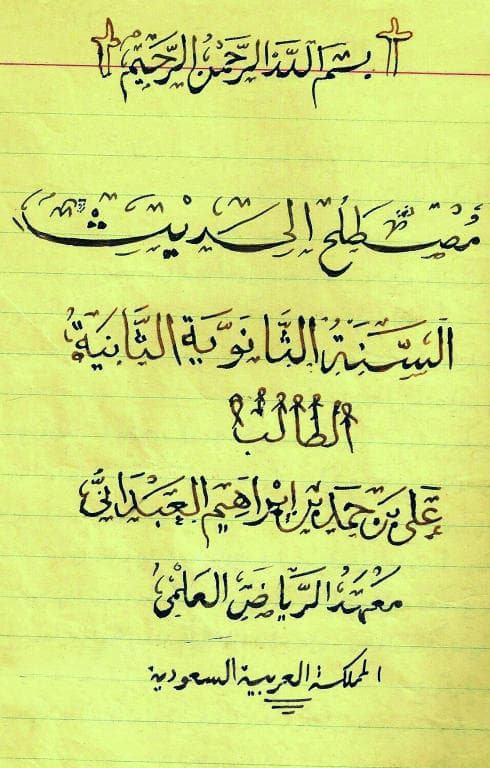 بسم الله الرحمن الرحيم
مُصْطَلح الحديث
السَّنَةُ الثَّانَوِيَّة الثَّانِيَةُ
الطالب
عَلي بن حَمَد بن إبْراهِيم العَبْدَانيُّ
مَعْهَدُ الرِّيَاضِ العِلْمِيُّ
المملكة العربية السعودية